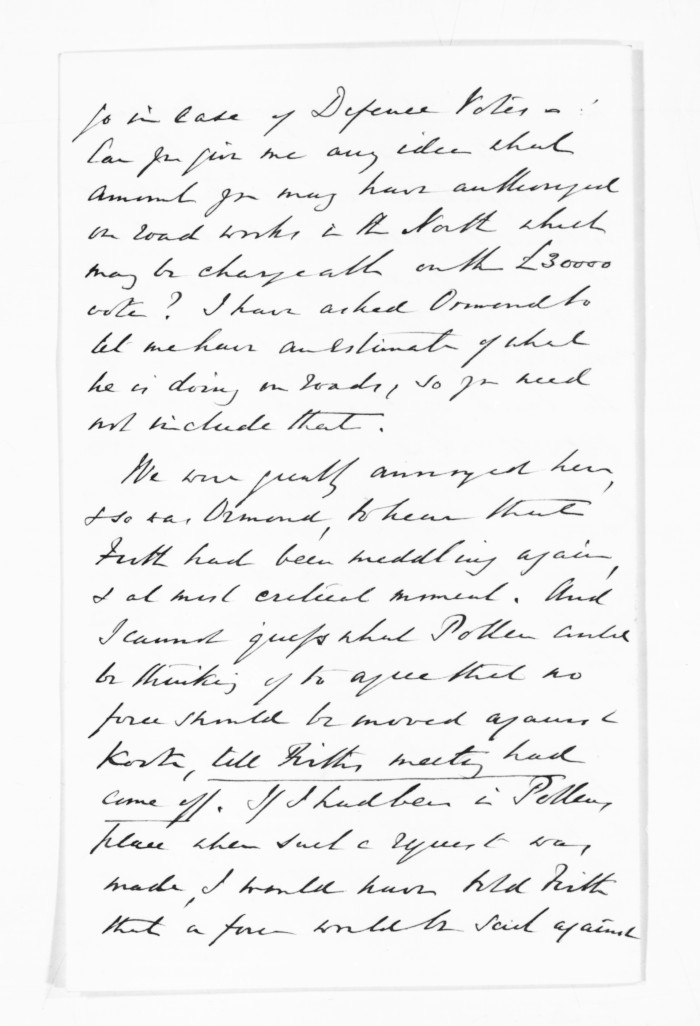 go in case of Defence Votes -
Can you give me any idea what
amount you may have authorized
on road works in the North which
may be chargeable on the £30000
vote? I have asked Ormond to
let me have an estimate of what
he is doing on roads, so you need
not include that.
We were greatly annoyed here,
& so was Ormond, to hear that
Firth had been meddling again,
& at most critical moment. And
I cannot guess what Pollen could
be thinking of to agree that no
force should be moved against
Kooti, till Firth's meeting had
come off. If I had been in Pollen's
place when such a request was
made, I would have told Firth
that a force would be sent against